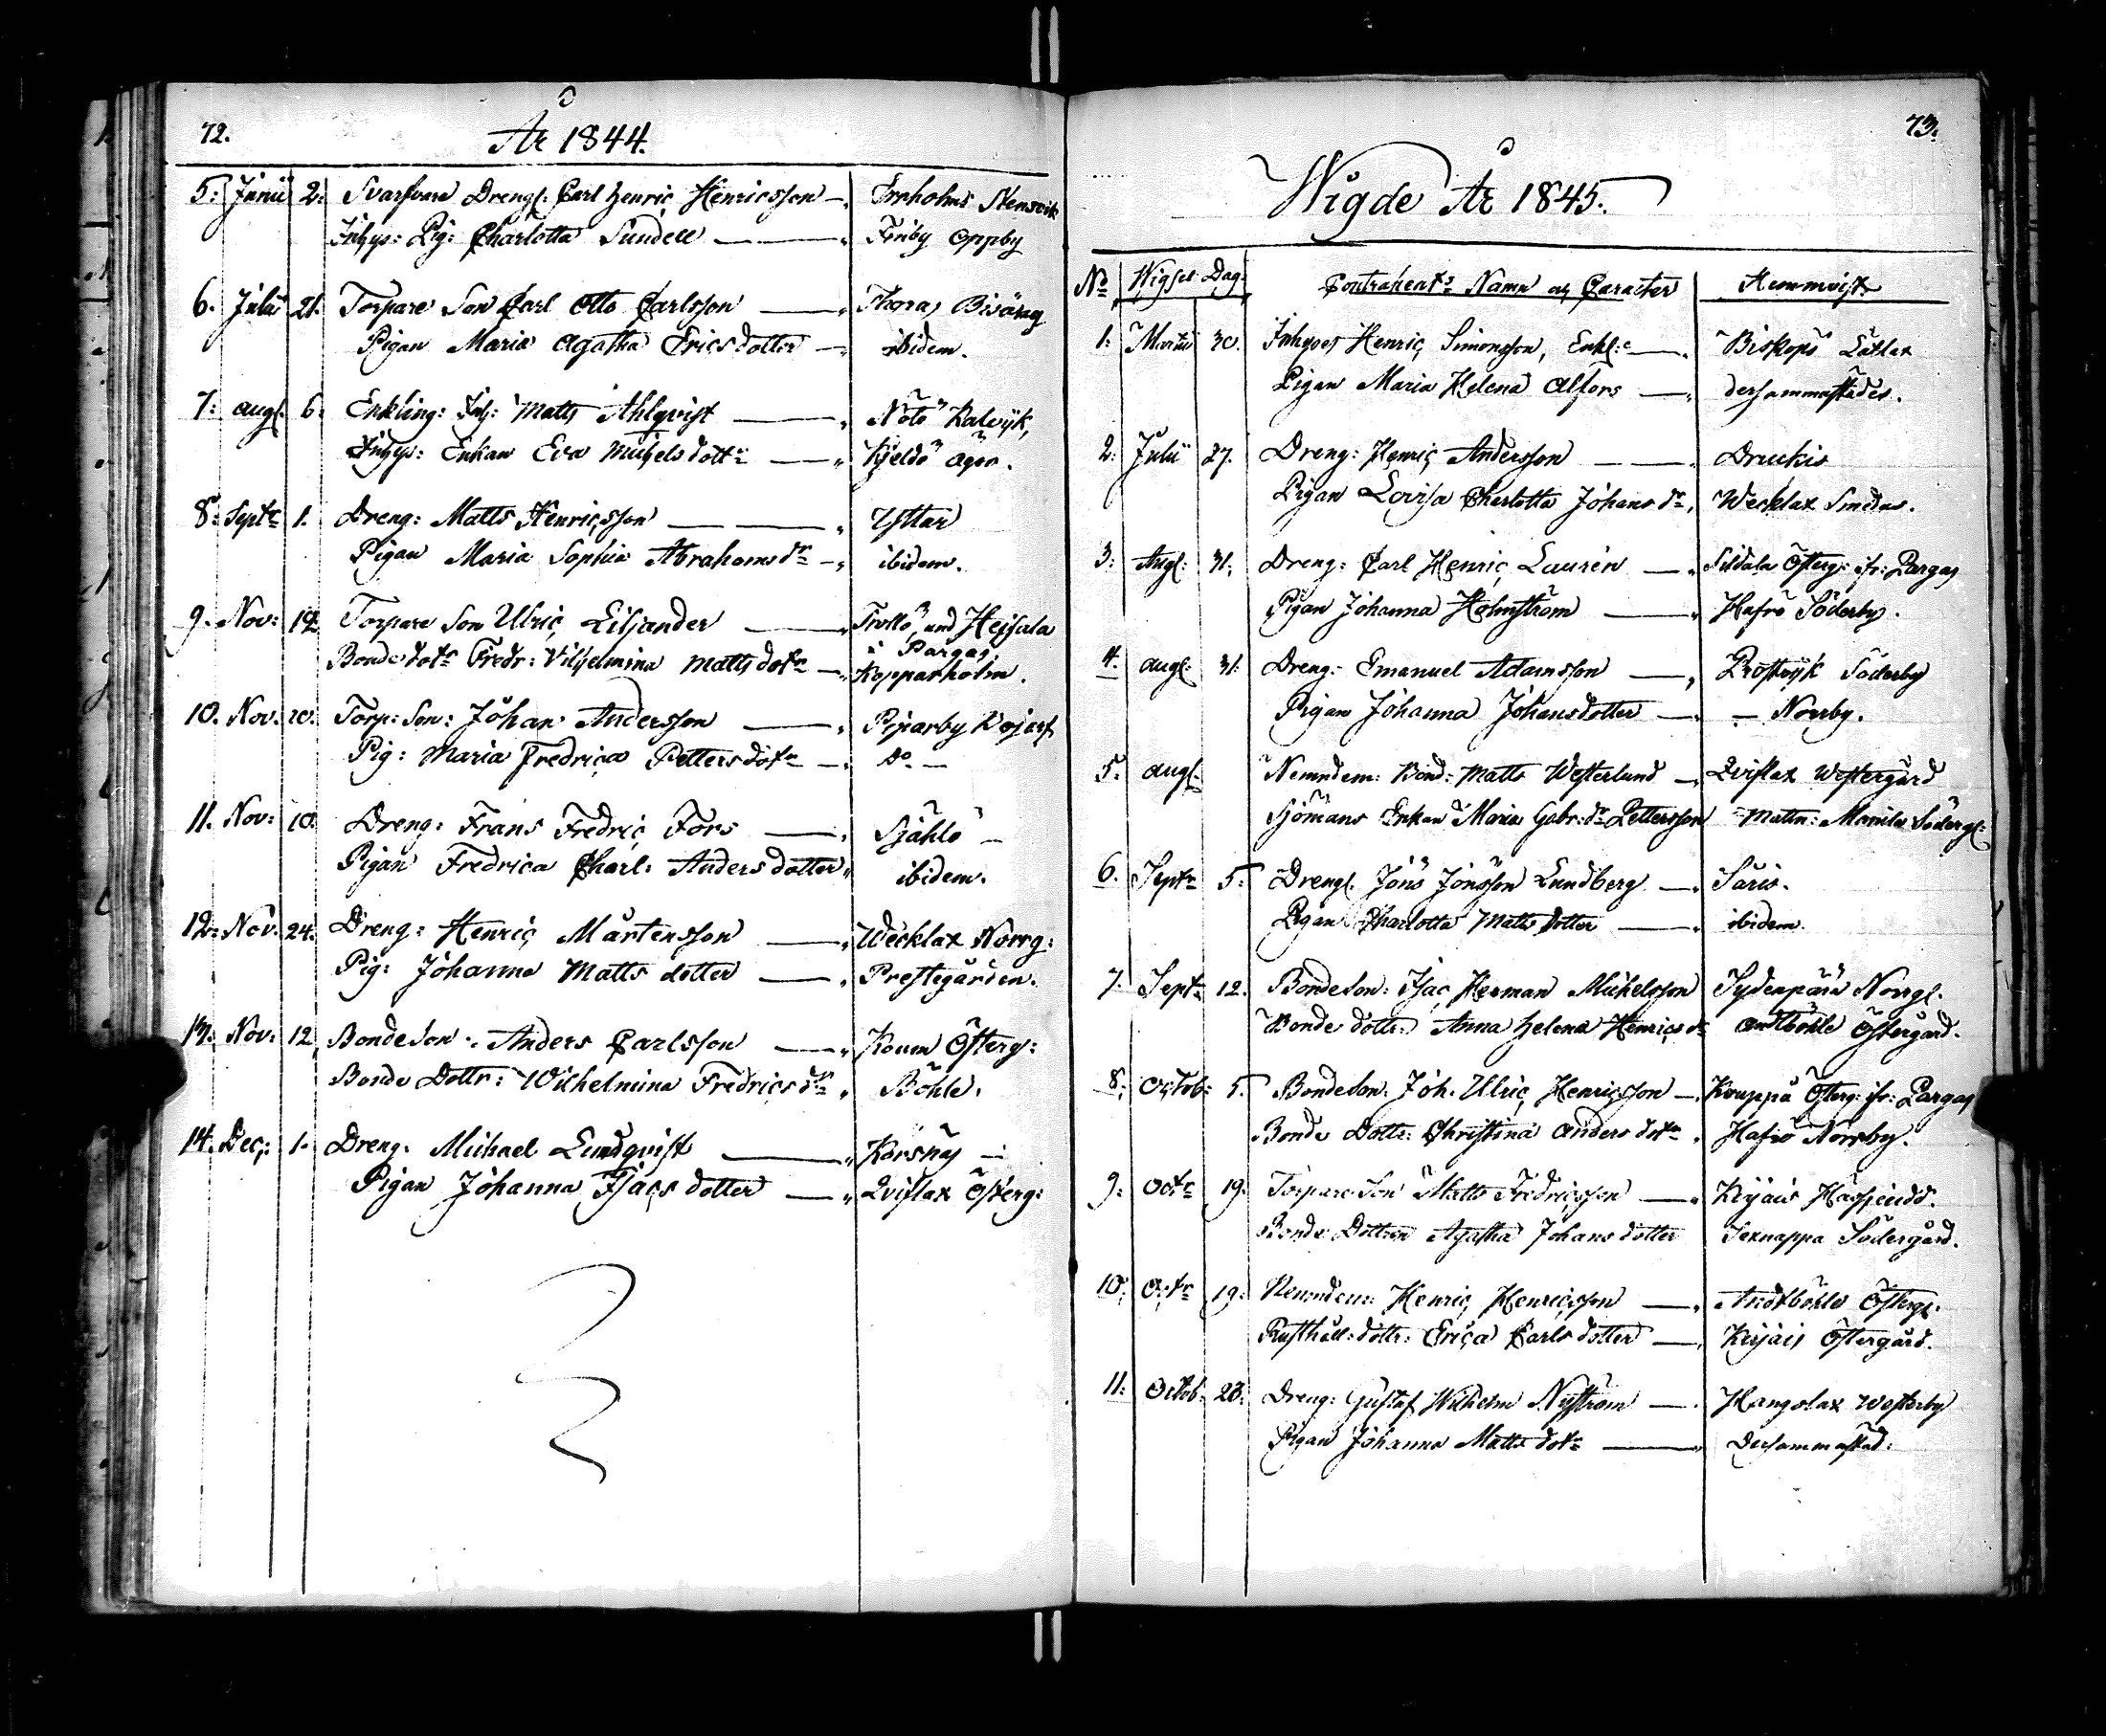 72.
År 1844.
5. Junii 2. Svarfvare Dreng: Carl Henric Henricsson —
Inhys: Pig: Charlotta Sundell — Finby Oppby
6. Julii 21. Torpare Son Carl Otto Carlsson — Thoras Bisäng
Pigan Maria Agatha Ericsdotter — ibidem.
7. Aug: 6. Enkling: Inh: Matts Ahlqvist — Nötö Kalvijk,
Inhys: Enkan Eva Michels dottr — Kjeldö
8. Septr 1. Dreng: Matts Henricsson — Ysttar
Pigan Maria Sophia Abrahams dr — ibidem.
9. Nov: 19. Torpare Son Ulric Liljander — Trollö und Hejsala
i Pargas
Bonde dotr Fredr: Vilhelmina Matts dotr — Kopparholm.
10. Nov. 10. Torp: Son: Johan Andersson — Piparby
Pig: Maria Fredrica Petters dotr — do —
11. Nov: 10. Dreng: Frans Fredric Fors — Själö —
Pigan Fredrica Charl: Anders dotter „ ibidem.
12. Nov. 24. Dreng: Henric Mårtensson — Wecklax Norrg:
Pig: Johanna Matts dotter — Prestegården.
13. Nov: 12. Bonde Son: Anders Carlsson — Koum Österg:
Bonde Dottr: Wilhelmina Fredrics dr „ Böhle.
14. Dec: 1. Dreng: Michael Lindqvist — Korsnäs —
Pigan Johanna Isacs dotter — Qvislax Österg:
73.
Wigde År 1845.
No Wigsel-Dag. Contrahentrs Namn och Caracter Hemmvist
1. Martii 30. Inhyses Henric Simonsson, Enkl: — Biskops Lätlax
Pigan Maria Helena Alfors — dersammastädes.
2. Julii 27. Dreng: Henric Andersson — Druckis
Pigan Lovisa Charlotta Johans dr. Wecklax Smedas.
3. Aug: 31. Dreng: Carl Henric Laurén — Sildala Österg: ifr: Pargas
Pigan Johanna Holmström — Hafrö Söderby.
4. Aug: 31. Dreng: Emanuel Adamsson — Prostvijk Söderby
Pigan Johanna Johansdotter — — Norrby.
5. Aug: Nemndem: Bond: Matts Westerlund — Qvislax Westergård
Sjömans Enkan Maria Gabr: dr Pettersson Malm: Södergl:
6. Septr 5. Dreng: Jöns Jönsson Lundberg — Saris.
Pigan Charlotta Matts dotter — ibidem.
7. Septr 12. Bonde Son: Isac Herman Michelsson Sydenpärä Norrg:
Bonde dottr: Anna Helena Henrics dr Andtböhle Östergård.
8. Octob: 5. Bonde Son: Joh. Ulric Henricsson — Kouppa Österg: ifr: Pargas
Bonde Dottr: Christina Anders dotr. Hafrö Norrby.
9. Octr 19. Torpare Son Matts Fredricsson — Kirjais
Bonde Dottren Agatha Johans dotter Sexnappa Södergård.
10. Octr 19. Nemndem: Henric Henricsson — Andtböhle Österg:
Rusthåll: dottr: Erica Carls dotter — Kirjais Östergård.
11. Octob: 28. Dreng: Gustaf Wilhelm Nyström — Mangolax Westerby
Pigan Johanna Matts dotr — Dersammastäd: